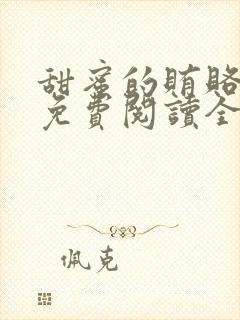 甜蜜的賄賂
免費閱讀全
佩克